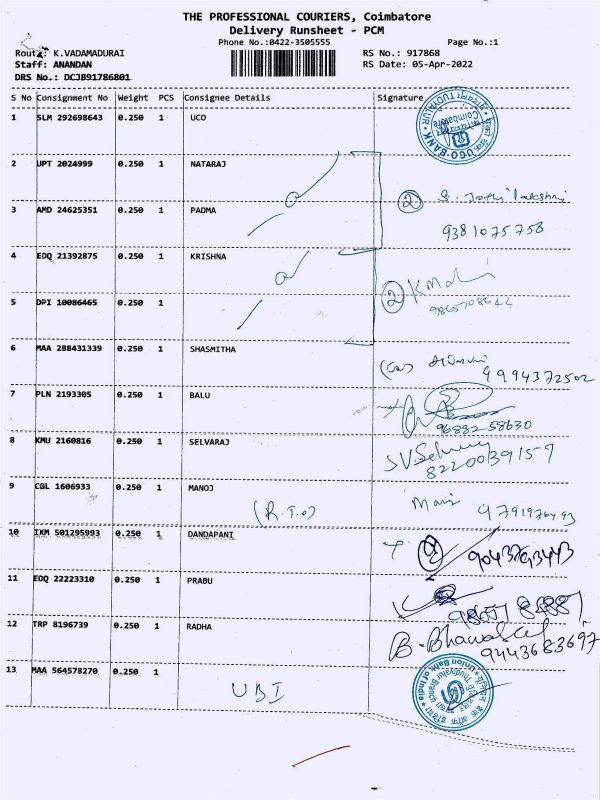 THE PROFESSIONAL COURIERS, Coimbatore
Delivery Runsheet - PCM
Phone No.:0422-3505555 Page No.:1
Route: K.VADAMADURAI RS No.: 917868
Staff: ANANDAN RS Date: 05-Apr-2022
DRS No.: DCJB91786801
S No Consignment No Weight PCS Consignee Details Signature
1 SLM 292698643 0.250 1 UCO
UCO BANK
Coimbatore
2 UPT 2024999 0.250 1 NATARAJ
3 AMD 24625351 0.250 1 PADMA 2
9381075758
4 EDQ 21392875 0.250 1 KRISHNA
2
5 DPI 10086465 0.250 1
6 MAA 288431339 0.250 1 SHASMITHA
9994372502
7 PLN 2193305 0.250 1 BALU
96882 58630
8 KMU 2160816 0.250 1 SELVARAJ
8220039159
9 CGL 1606933 0.250 1 MANOJ
(R.T.O)
10 IXM 501295993 0.250 1 DANDAPANI
11 EDQ 22223310 0.250 1 PRABU
12 TRP 8196739 0.250 1 RADHA
9443683697
13 MAA 564578270 0.250 1
UBI
Union Bank of India